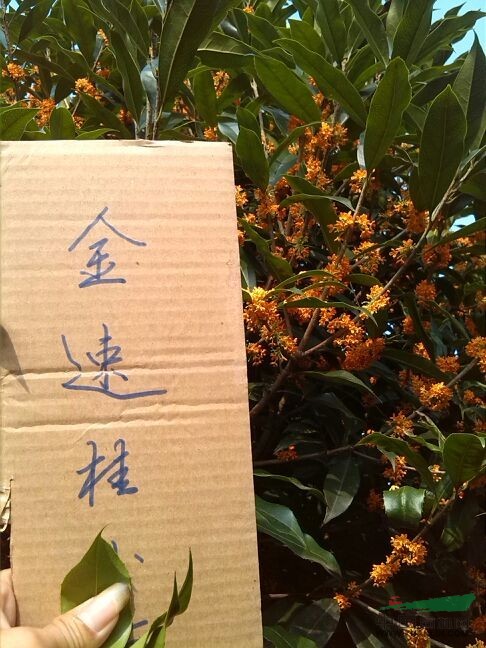 金
速
桂